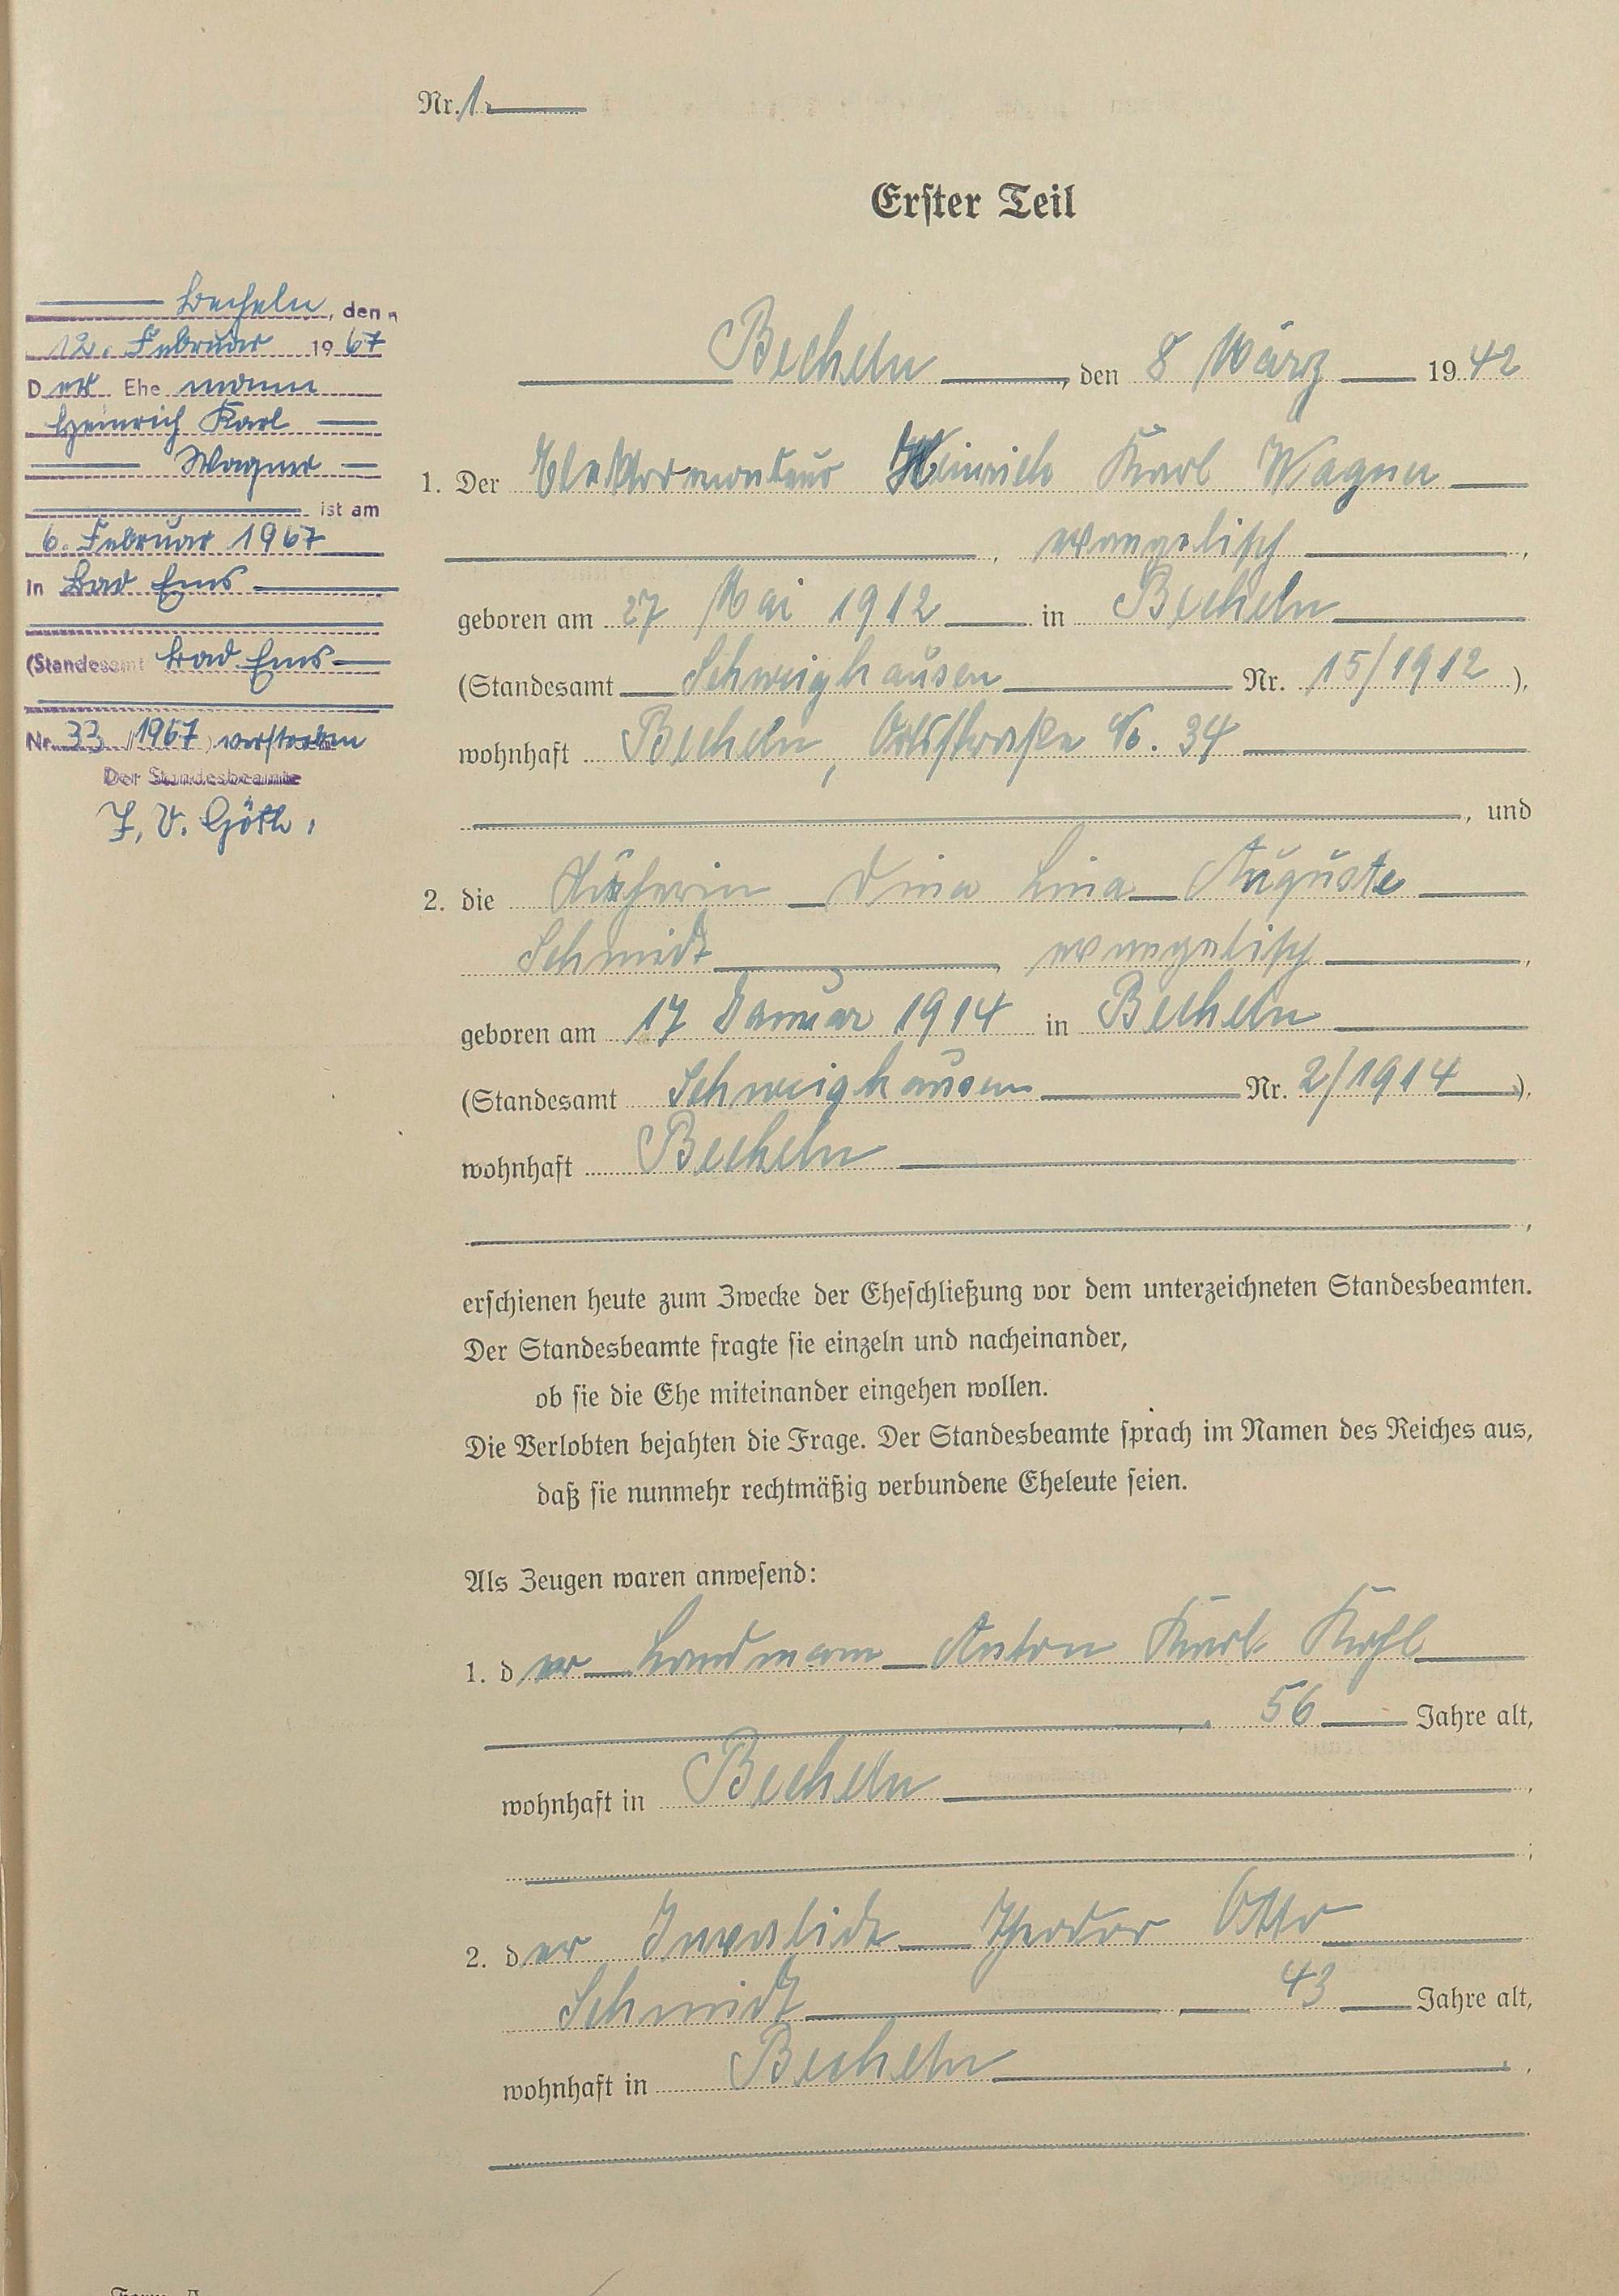 Nr. 1.
Erster Teil
Becheln, den
12. Februar 1967
Der Ehemann
Heinrich Karl
Wagner
ist am
6. Februar 1967
in Bad Ems
(Standesamt Bad Ems
Nr. 33/1967) verstorben
Der Standesbeamte
I. V. Göth.
Becheln, den 8 März 1942
1. Der Elektromonteur Heinrich Karl Wagner
, evangelisch,
geboren am 27 Mai 1912 in Becheln
(Standesamt Schweighausen Nr. 15/1912),
wohnhaft Becheln, Ortsstraße No. 34
, und
2. die Dina Lina Auguste
Schmidt, evangelisch,
geboren am 17 Januar 1914 in Becheln
(Standesamt Schweighausen Nr. 2/1914),
wohnhaft Becheln
,
erschienen heute zum Zwecke der Eheschließung vor dem unterzeichneten Standesbeamten.
Der Standesbeamte fragte sie einzeln und nacheinander,
ob sie die Ehe miteinander eingehen wollen.
Die Verlobten bejahten die Frage. Der Standesbeamte sprach im Namen des Reiches aus,
daß sie nunmehr rechtmäßig verbundene Eheleute seien.
Als Zeugen waren anwesend:
1. der Landmann Anton Karl
, 56 Jahre alt,
wohnhaft in Becheln,
;
2. der Invalide Theodor Otto
Schmidt, 43 Jahre alt,
wohnhaft in Becheln,